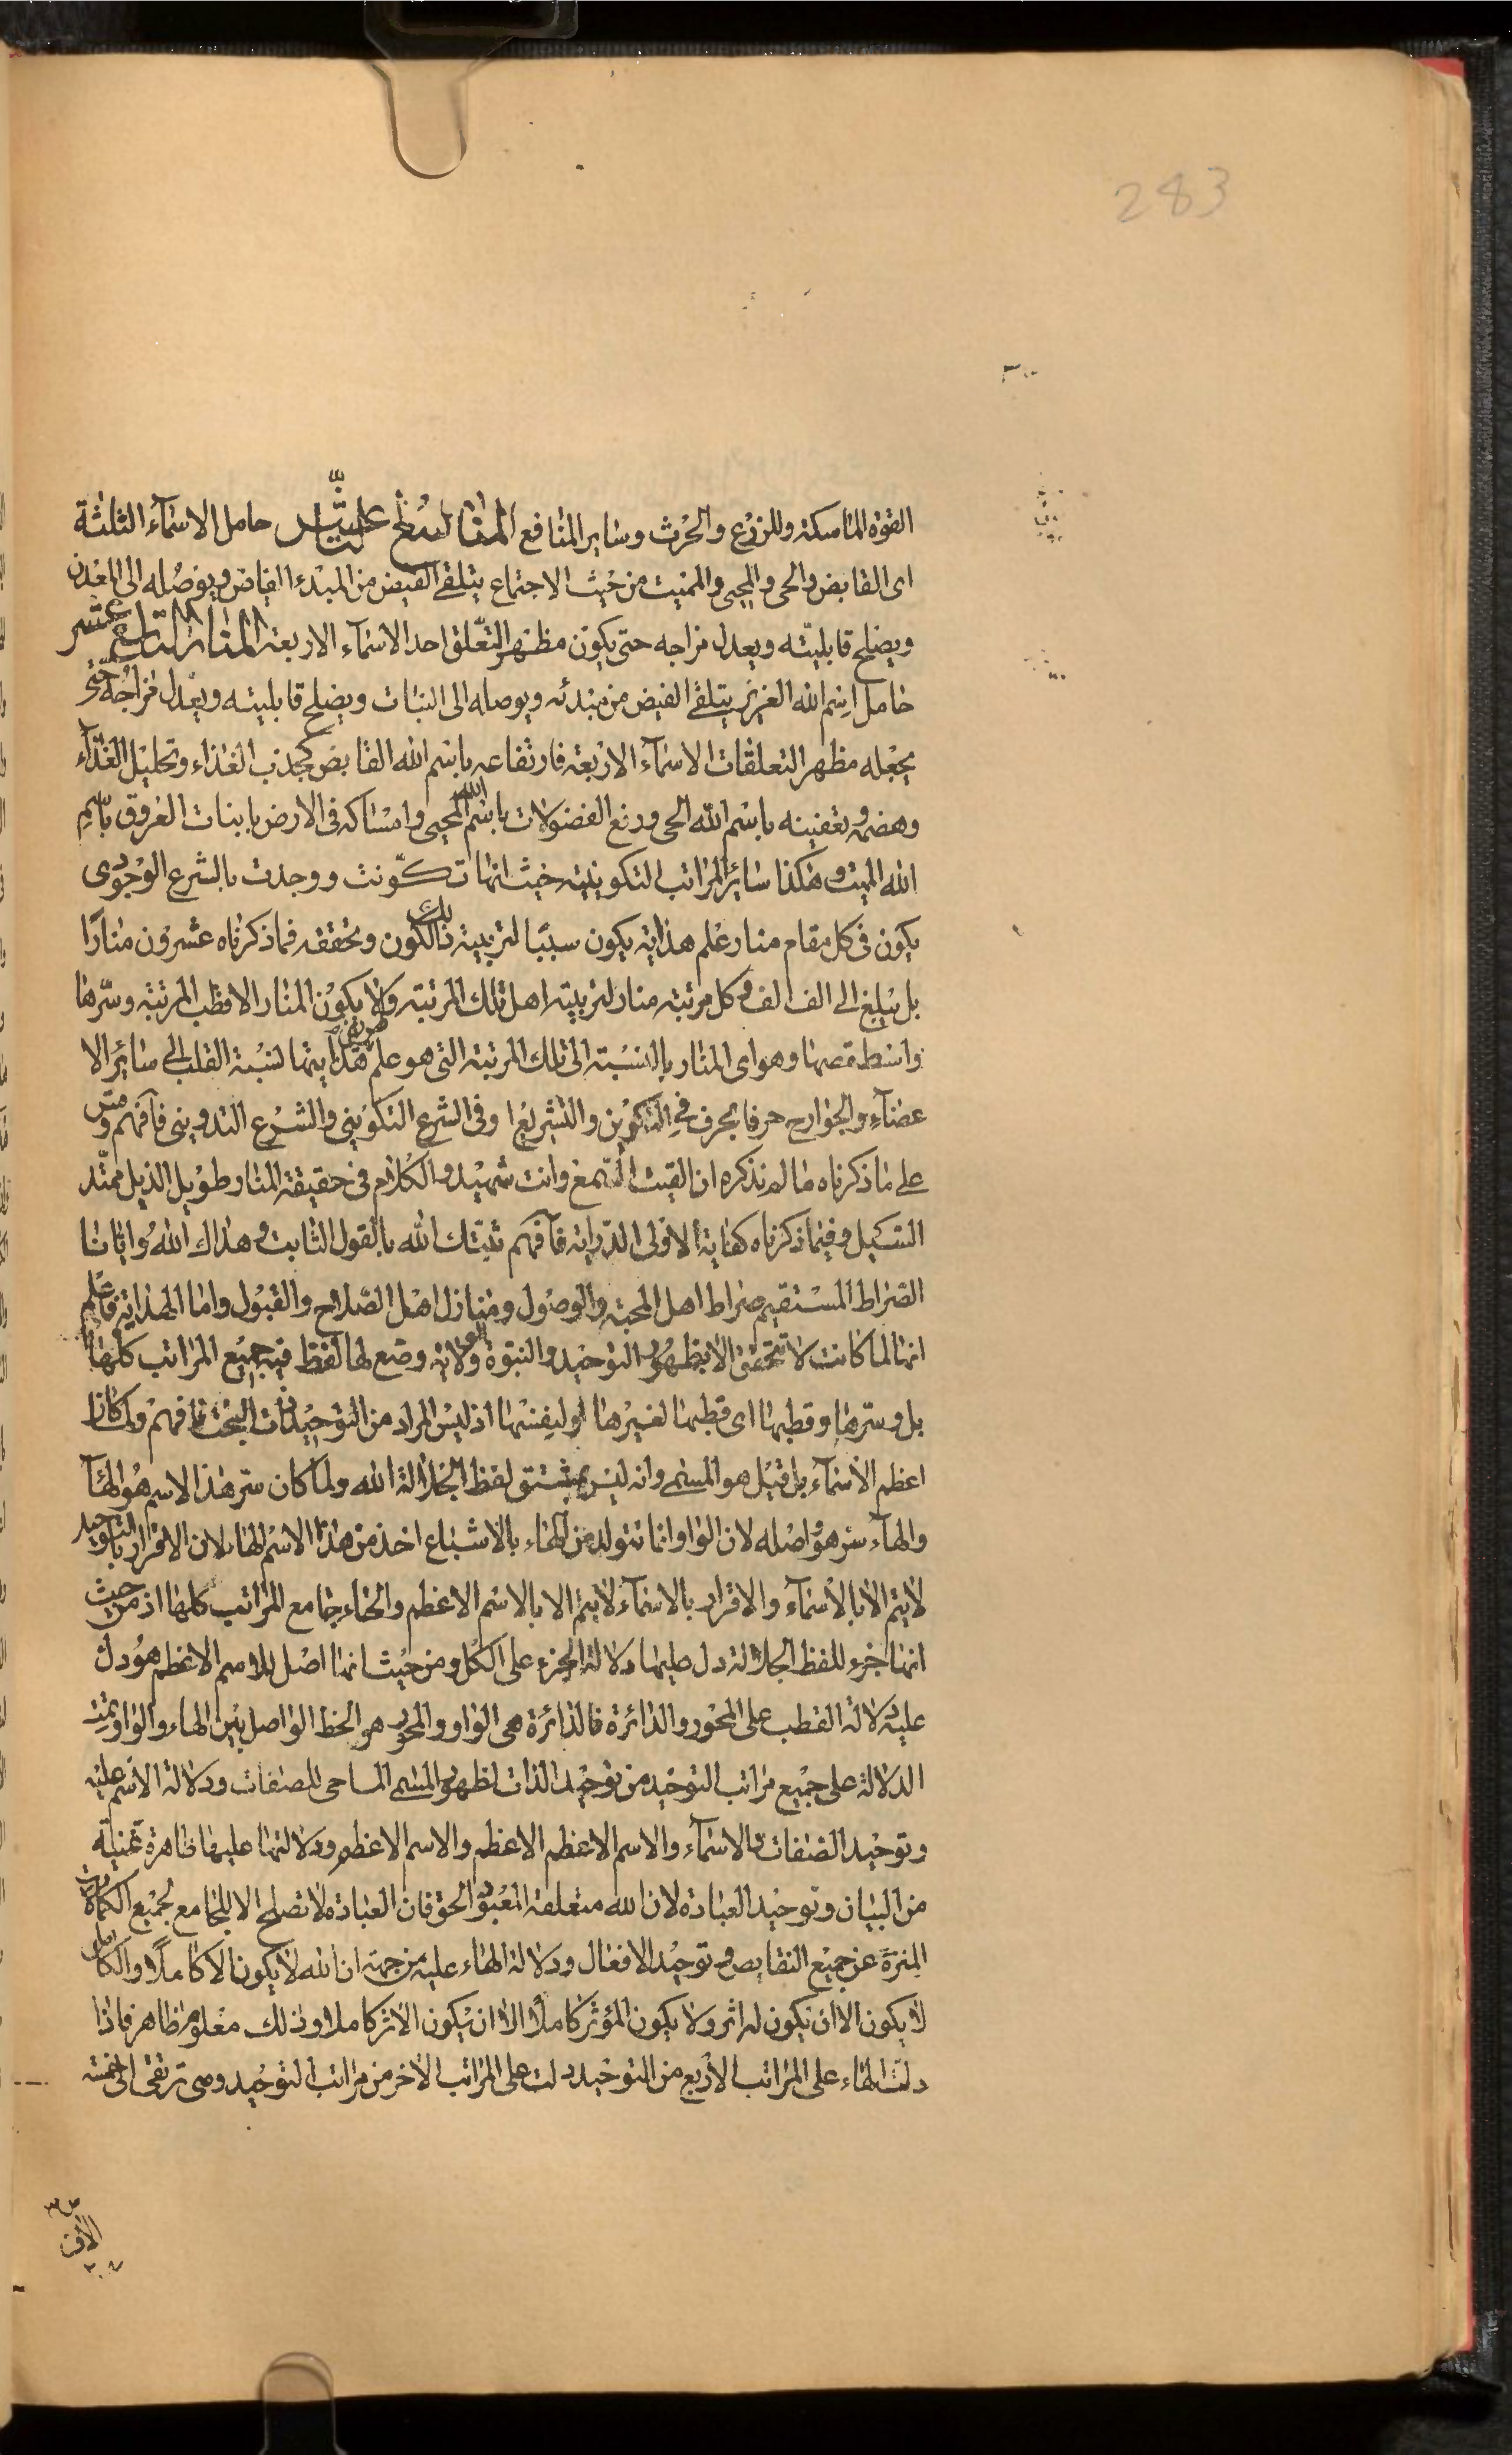 283
٣٠٠
القوة الماسكة وللزرع والحرث وساير المنافع المنار الثامن عشر حامل الاسمآء الثلثة
اى القابض والحى والمحيى والمميت من حيث الاجتماع يتلقى الفيض من المبدء الفياض ويوصله الى المعدن
ويصلح قابليته ويعدل مزاجه حتى يكون مظهر التعلق احد الاسمآء الاربعة المنار التاسع عشر
حامل اسم الله العزيز يتلقى الفيض من مبدئه ويوصله الى النبات ويصلح قابليته ويعدل مزاجه حتى
يجعله مظهر التعلقات الاسمآء الاربعة فارتفاعه باسم الله القابض كجذب الغذاء وتحليل الغذآء
وهضمه وتعفينه باسم الله الحى ودفع الفضولات باسم الله المحيى وامساكه فى الارض باثبات العروق باسم
الله المميت وهكذا سائر المراتب التكوينية حيث انها تكونت ووجدت بالشرع الوجودى
يكون فى كل مقام منار علم هداية يكون سببا لتربية ذلك الكون وتحققه فما ذكرناه عشرون منارًا
بل يبلغ الى الف الف وكل مرتبة منار لتربية اهل تلك المرتبة ولا يكون المنار الا قطب المرتبة وسرها
واسطقصها وهو اى المنار بالنسبة الى تلك المرتبة التى هو علم هدايتها لنسبة القلب الى سائر الا
عضآء والجوارح حرفا بحرف فى التكوين والتشريع وفى الشرع التكوينى والشرع التدوينى فافهم وقس
على ما ذكرناه ما لم نذكره ان القيت السمع وانت شهيد والكلام فى حقيقة المنار طويل الذيل ممتد
السيل وفيما ذكرناه كفاية لاولى الدراية فآفهم ثبتك الله بالقول الثابت وهداك الله وايانا
الصراط المستقيم صراط اهل المحبة والوصول ومنازل اهل الصلاح والقبول واما الهداية فاعلم
انها لما كانت لا تتحقق الا بظهور التوحيد والنبوة والولاية وضع لها لفظ فيه جميع المراتب كلها
بل وسرها وقطبها اى قطبها لغيرها او لنفسها اذ ليس المراد من التوحيد ذات البحت فافهم ولما كان
اعظم الأسمآء بل قيل هو المسمى وانه ليس بمشتق لفظ الجلالة الله ولما كان سر هذا الاسم هو الهآ
والهآء سر هو واصله لان الواو انما تتولد من الهاء بالاشباع اخذ من هذا الاسم الهاء لان الاقرار بالتوحيد
لا يتم الا بالأسمآء والاقرار بالاسمآء لا يتم الا بالاسم الاعظم والهاء جامع المراتب كلها اذ من حيث
انها جزء للفظ الجلالة دل عليها دلالة الجزء على الكل ومن حيث انها اصل للاسم الاعظم هو دل
عليه دلالة القطب على المحور والدائرة فالدائرة هى الواو والمحور هو الخط الواصل بين الهاء والواو تمت
الدلالة على جميع مراتب التوحيد من توحيد الذات لظهور المسمى الماحى للصفات ودلالة الاسم عليه
وتوحيد الصفات بالاسمآء والاسم الاعظم الاعظم والاسم الاعظم ودلالتها عليها ظاهرة غنية
من البيان وتوحيد العبادة لان الله متعلقة المعبود الحق فان العبادة لا تصلح الا للجامع لجميع الكمالات
المنزه عن جميع النقايص وتوحيد الافعال ودلالة الهاء عليه من جهة ان الله لا يكون الا كاملا والكامل
لا يكون الا ان يكون له اثر ولا يكون المؤثر كاملا الا ان يكون الاثر كاملا وذلك معلوم ظاهر فاذا
دلت الهاء على المراتب الأربع من التوحيد دلت على المراتب الأخر من مراتب التوحيد وهى ترتقى الى خمسة